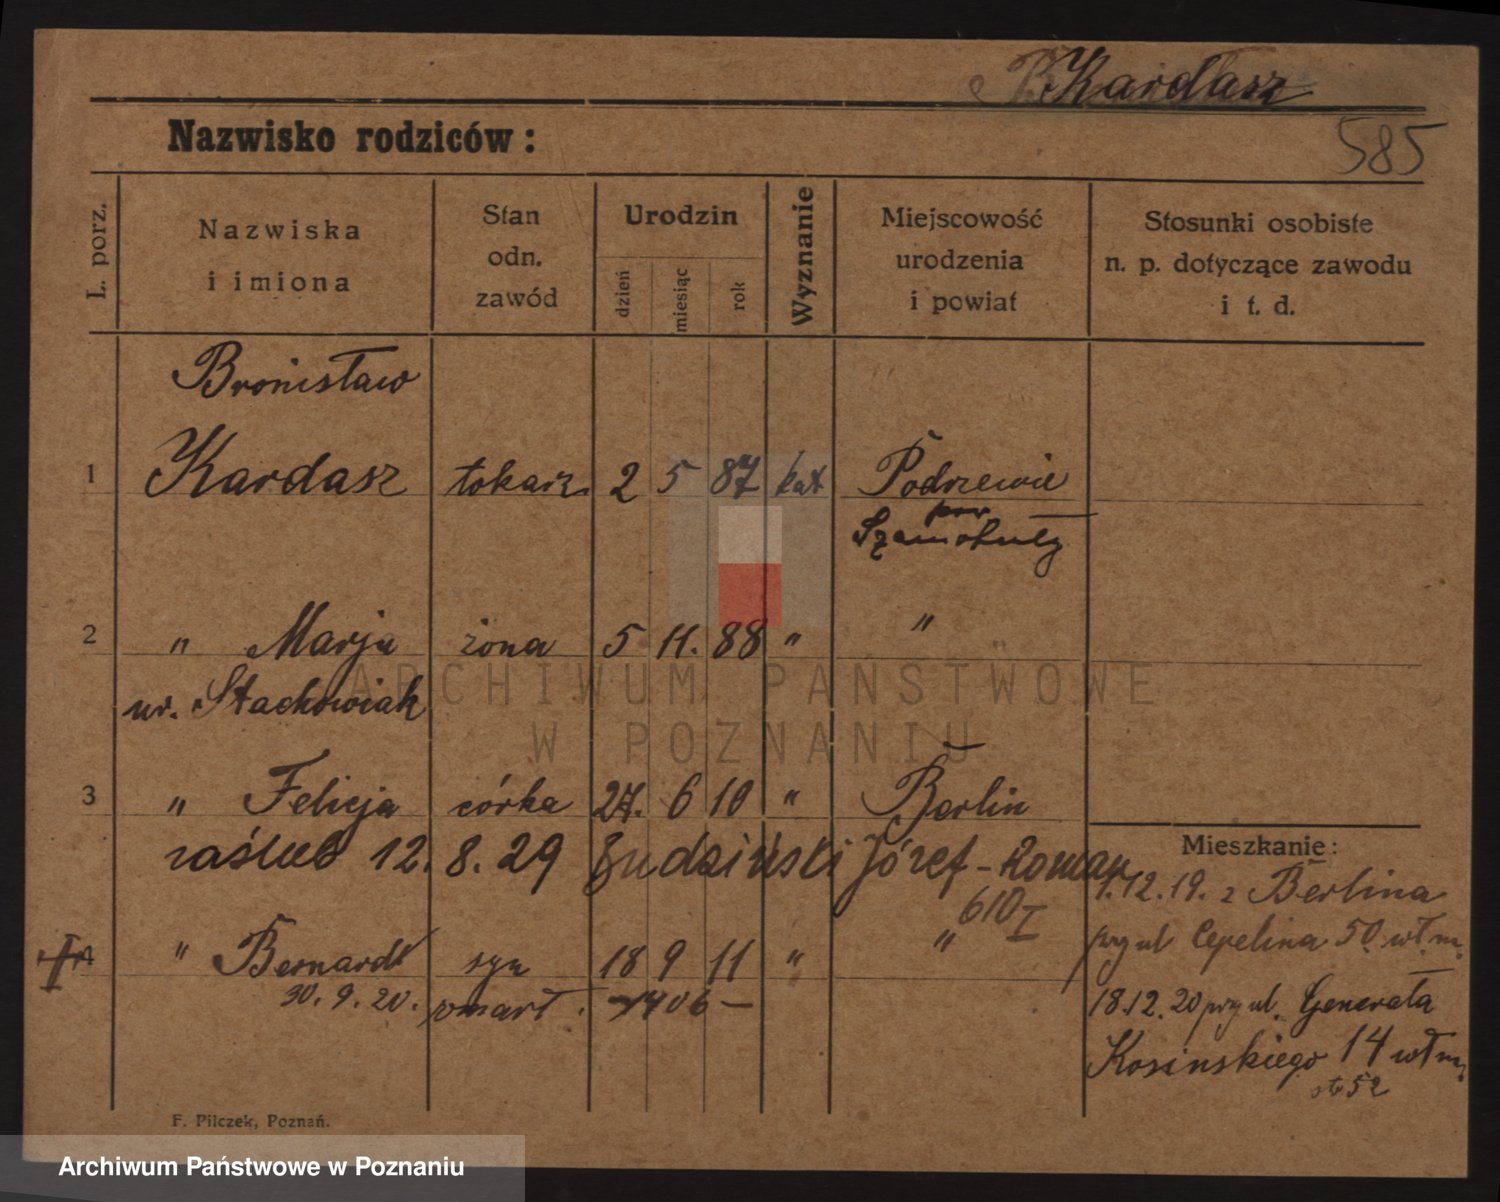 Kardasz
Nazwisko rodziców :
585
L. porz.
Nazwiska i imiona
Stan odn. zawód
Urodzin
dzień
miesiąc
rok
Wyznanie
Miejscowość urodzenia i powiat
Stosunki osobiste n. p. dotyczące zawodu i t. d.
Bronisław
1 Kardasz tokarz 2 5 87 kat Podrzewie
pow
Szamotuły
2 " Marja żona 5 11. 88 " "
ur. Stachowiak
3 " Felicja córka 27. 6 10 " Berlin
zaślub 12. 8. 29 Józef-Roman
610 I
4 " Bernard syn 18 9 11 " "
30. 9. 20. zmarł. -1406-
Mieszkanie:
1.12.19. z Berlina
przy ul Cepelina 50 wł m.
18.12.20 przy ul. Generała
Kosinskiego 14 wł m.
52
F. Pilczek, Poznań.
ARCHIWUM PAŃSTWOWE
W POZNANIU
Archiwum Państwowe w Poznaniu